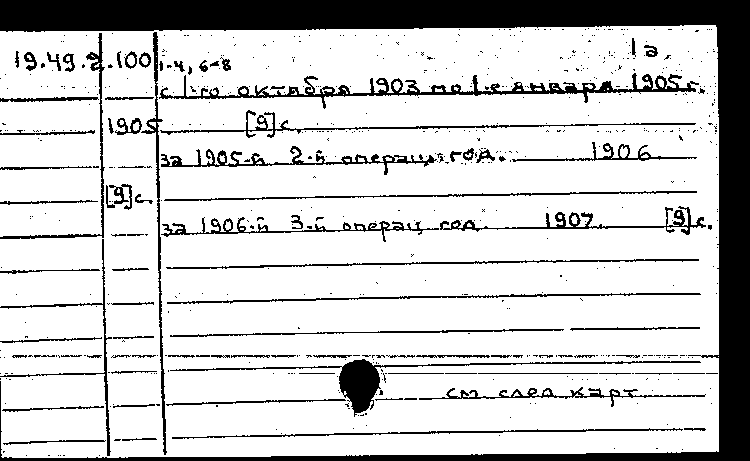 1а.
19.49.2.100 1-4, 6-8
с 1-го октября 1903 по 1-е января 1905 г.
1905. [9] с.
за 1905-й 2-й операц. год. 1906.
[9] с.
за 1906-й 3-й операц. год. 1907. [9] с.
см. след. карт.